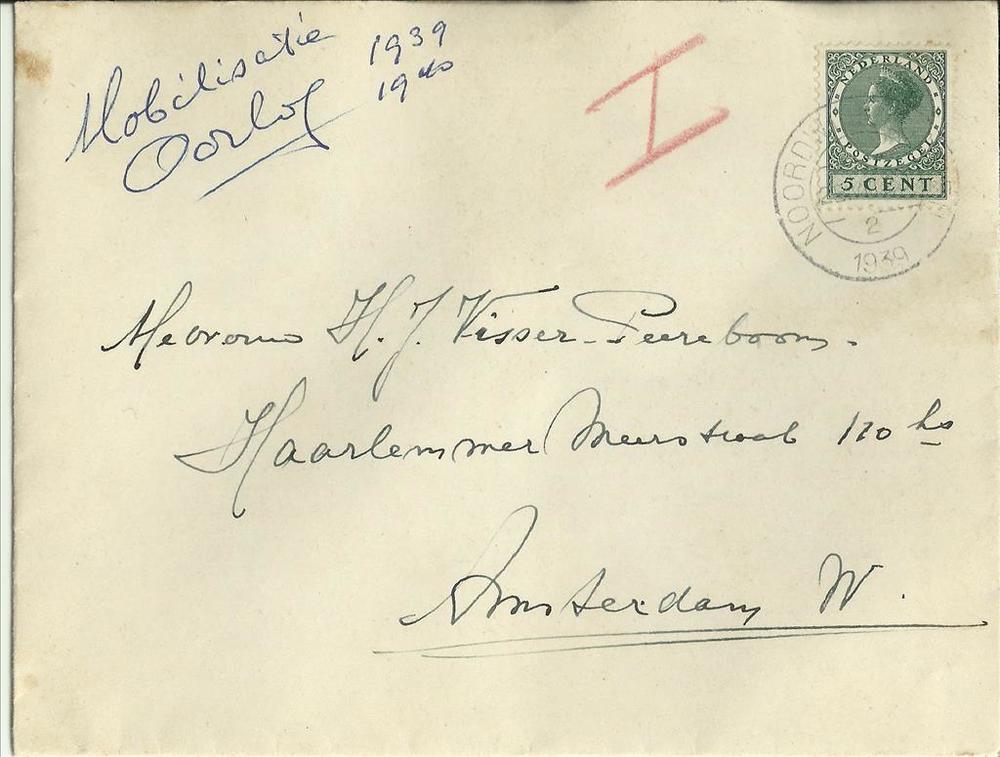 Mobilisatie 1939
Oorlog 1940
I
NEDERLAND
POSTZEGEL
5 CENT
NOORDW
2
1939
Mevrouw H. J. Visser-Peereboom.
Haarlemmer Meerstraat 120 hs
Amsterdam W.